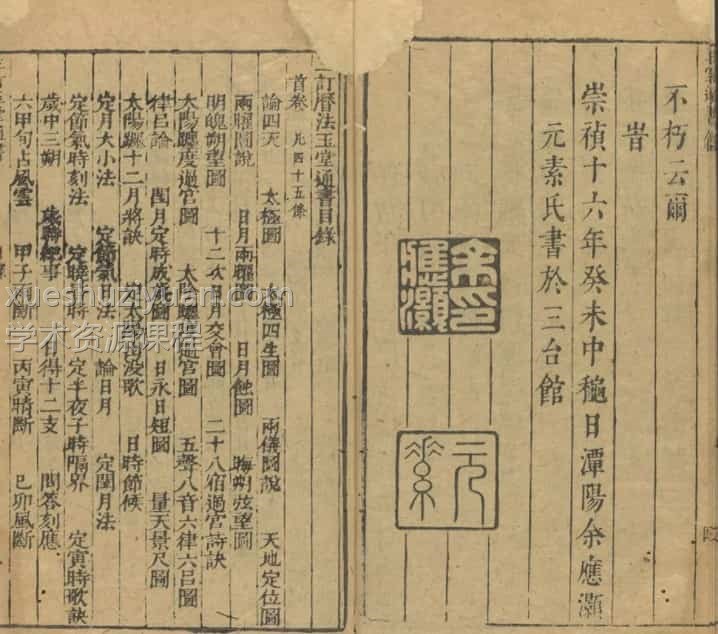 不朽云爾
旹
崇禎十六年癸未中穐日潭陽余應灝
元素氏書於三台館
余印應灝
元素
訂曆法玉堂通書目錄
首卷 凡四十五條
論四天 太極圖 太極四生圖 兩儀圖說 天地定位圖
兩曜圖說 日月兩曜圖 日月蝕圖 晦朔弦望圖
明魄朔望圖 十二次日月交會圖 二十八宿過宮詩訣
太陽躔度過宮圖 太陰躔度過宮圖 五聲八音六律六呂圖
律呂論 閏月定時成歲圖 日永日短圖 量天景尺圖
太陽躔十二月將訣 定太陽出沒歌 日時節候
定月大小法 定節氣日法 論日月 定閏月法
定節氣時刻法 定曉昏時 定半夜子時隔界 定寅時歌訣
歲中三朔 事 日得十二支 問答刻應
六甲旬占風雲 甲子雨斷 丙寅晴斷 己卯風斷
xueshuziyuan.com
学术资源课程